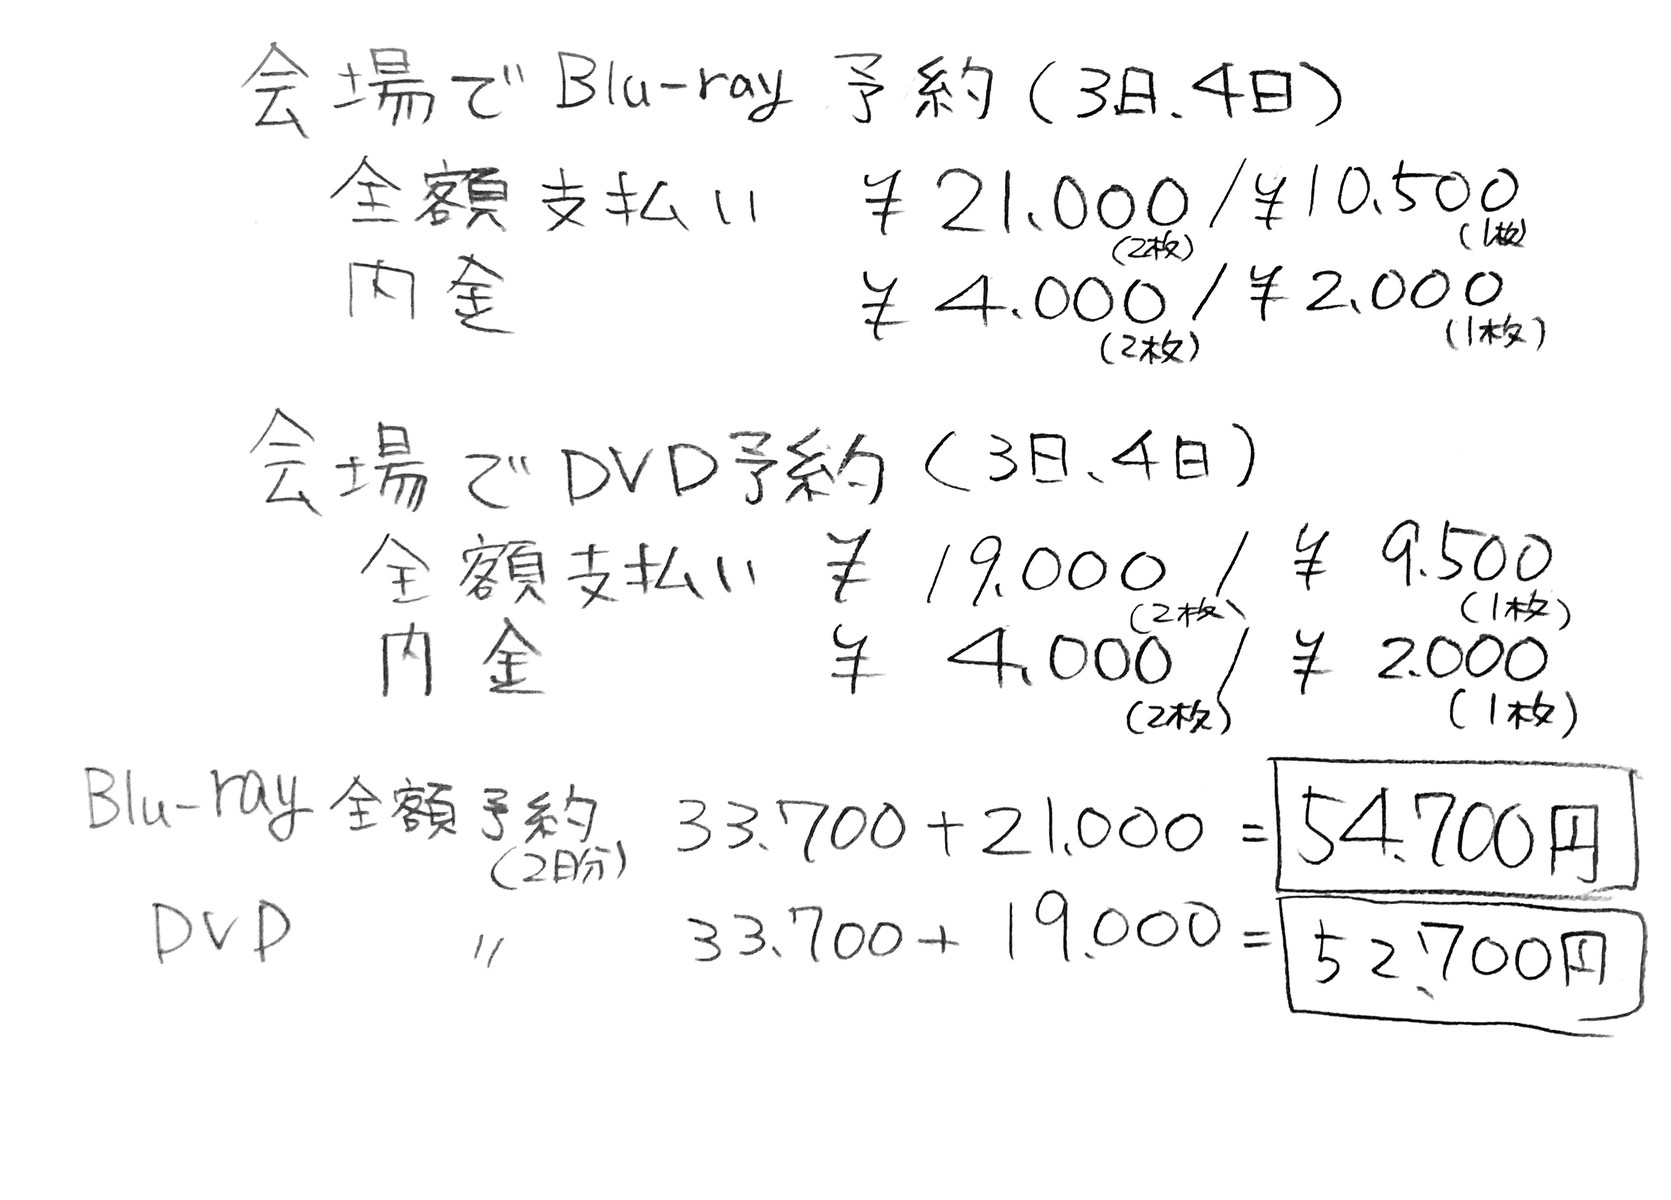 会場でBlu-ray予約(3日、4日)
全額支払い ¥21.000/¥10.500
(2枚) (1枚)
内金 ¥4.000/¥2.000
(2枚) (1枚)
会場でDVD予約(3日、4日)
全額支払い ¥19.000/¥9.500
(2枚) (1枚)
内金 ¥4.000/¥2.000
(2枚) (1枚)
Blu-ray全額予約 33.700+21.000=54.700円
(2日分)
DVD 〃 33.700+19.000=52.700円